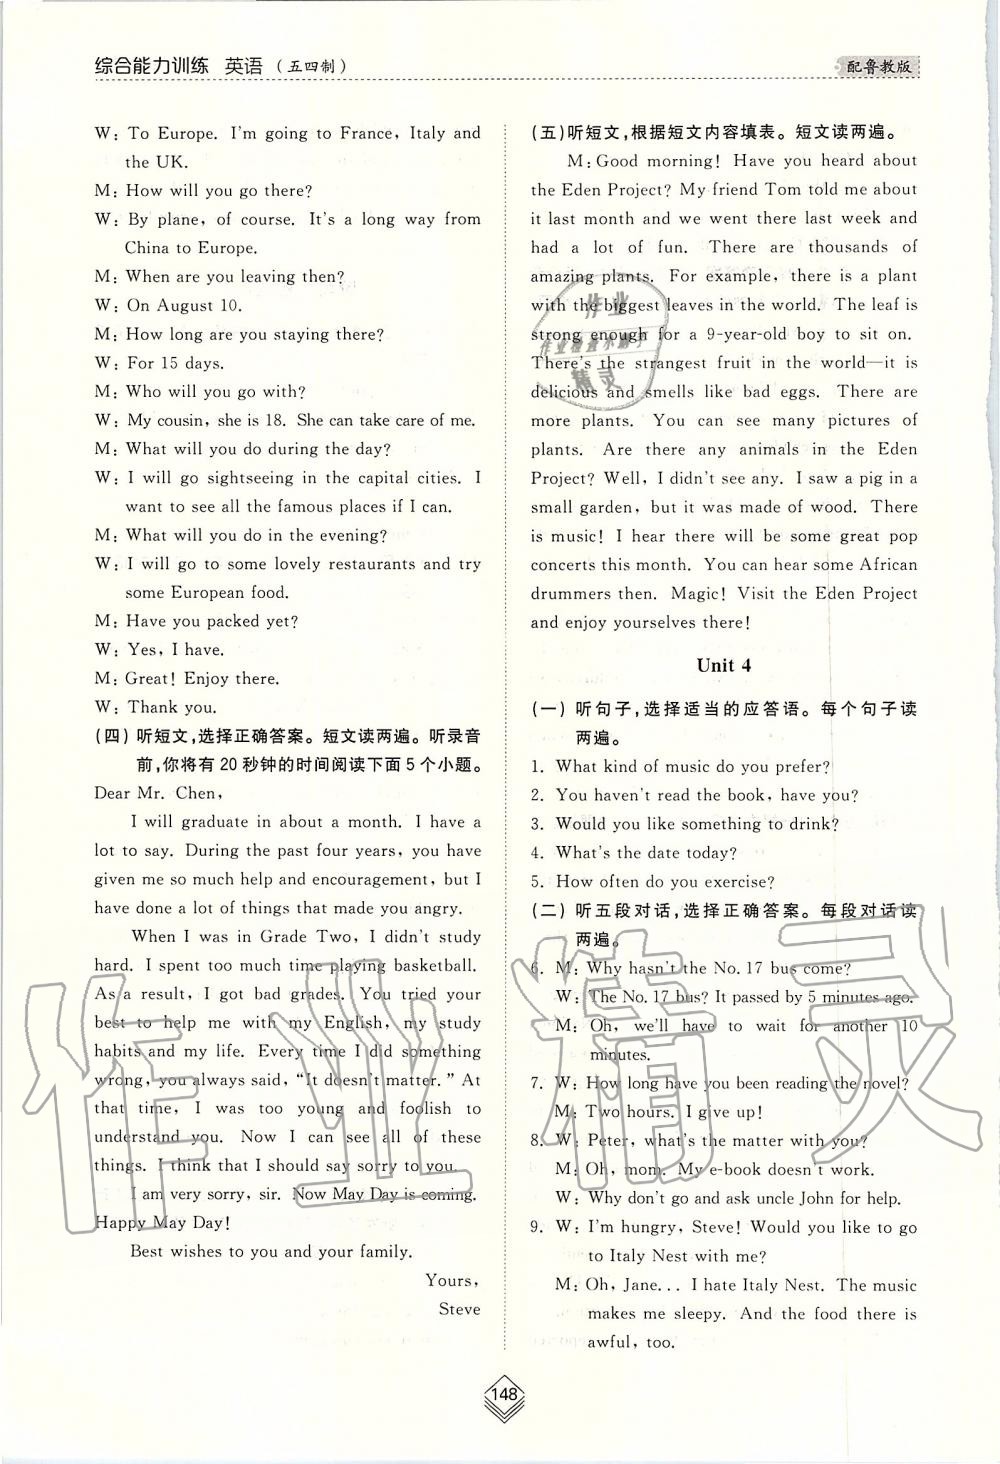 综合能力训练 英语（五四制）
配鲁教版
W: To Europe. I'm going to France, Italy and
the UK.
M: How will you go there?
W: By plane, of course. It's a long way from
China to Europe.
M: When are you leaving then?
W: On August 10.
M: How long are you staying there?
W: For 15 days.
M: Who will you go with?
W: My cousin, she is 18. She can take care of me.
M: What will you do during the day?
W: I will go sightseeing in the capital cities. I
want to see all the famous places if I can.
M: What will you do in the evening?
W: I will go to some lovely restaurants and try
some European food.
M: Have you packed yet?
W: Yes, I have.
M: Great! Enjoy there.
W: Thank you.
(四) 听短文,选择正确答案。短文读两遍。听录音
前,你将有20秒钟的时间阅读下面5个小题。
Dear Mr. Chen,
I will graduate in about a month. I have a
lot to say. During the past four years, you have
given me so much help and encouragement, but I
have done a lot of things that made you angry.
When I was in Grade Two, I didn't study
hard. I spent too much time playing basketball.
As a result, I got bad grades. You tried your
best to help me with my English, my study
habits and my life. Every time I did something
wrong, you always said, “It doesn't matter.” At
that time, I was too young and foolish to
understand you. Now I can see all of these
things. I think that I should say sorry to you.
I am very sorry, sir. Now May Day is coming.
Happy May Day!
Best wishes to you and your family.
Yours,
Steve
(五)听短文,根据短文内容填表。短文读两遍。
M: Good morning! Have you heard about
the Eden Project? My friend Tom told me about
it last month and we went there last week and
had a lot of fun. There are thousands of
amazing plants. For example, there is a plant
with the biggest leaves in the world. The leaf is
strong enough for a 9-year-old boy to sit on.
There's the strangest fruit in the world—it is
delicious and smells like bad eggs. There are
more plants. You can see many pictures of
plants. Are there any animals in the Eden
Project? Well, I didn't see any. I saw a pig in a
small garden, but it was made of wood. There
is music! I hear there will be some great pop
concerts this month. You can hear some African
drummers then. Magic! Visit the Eden Project
and enjoy yourselves there!
Unit 4
(一) 听句子,选择适当的应答语。每个句子读
两遍。
1. What kind of music do you prefer?
2. You haven't read the book, have you?
3. Would you like something to drink?
4. What's the date today?
5. How often do you exercise?
(二) 听五段对话,选择正确答案。每段对话读
两遍。
6. M: Why hasn't the No. 17 bus come?
W: The No. 17 bus? It passed by 5 minutes ago.
M: Oh, we'll have to wait for another 10
minutes.
7. W: How long have you been reading the novel?
M: Two hours. I give up!
8. W: Peter, what's the matter with you?
M: Oh, mom. My e-book doesn't work.
W: Why don't go and ask uncle John for help.
9. W: I'm hungry, Steve! Would you like to go
to Italy Nest with me?
M: Oh, Jane... I hate Italy Nest. The music
makes me sleepy. And the food there is
awful, too.
148
作业精灵
作业
精灵